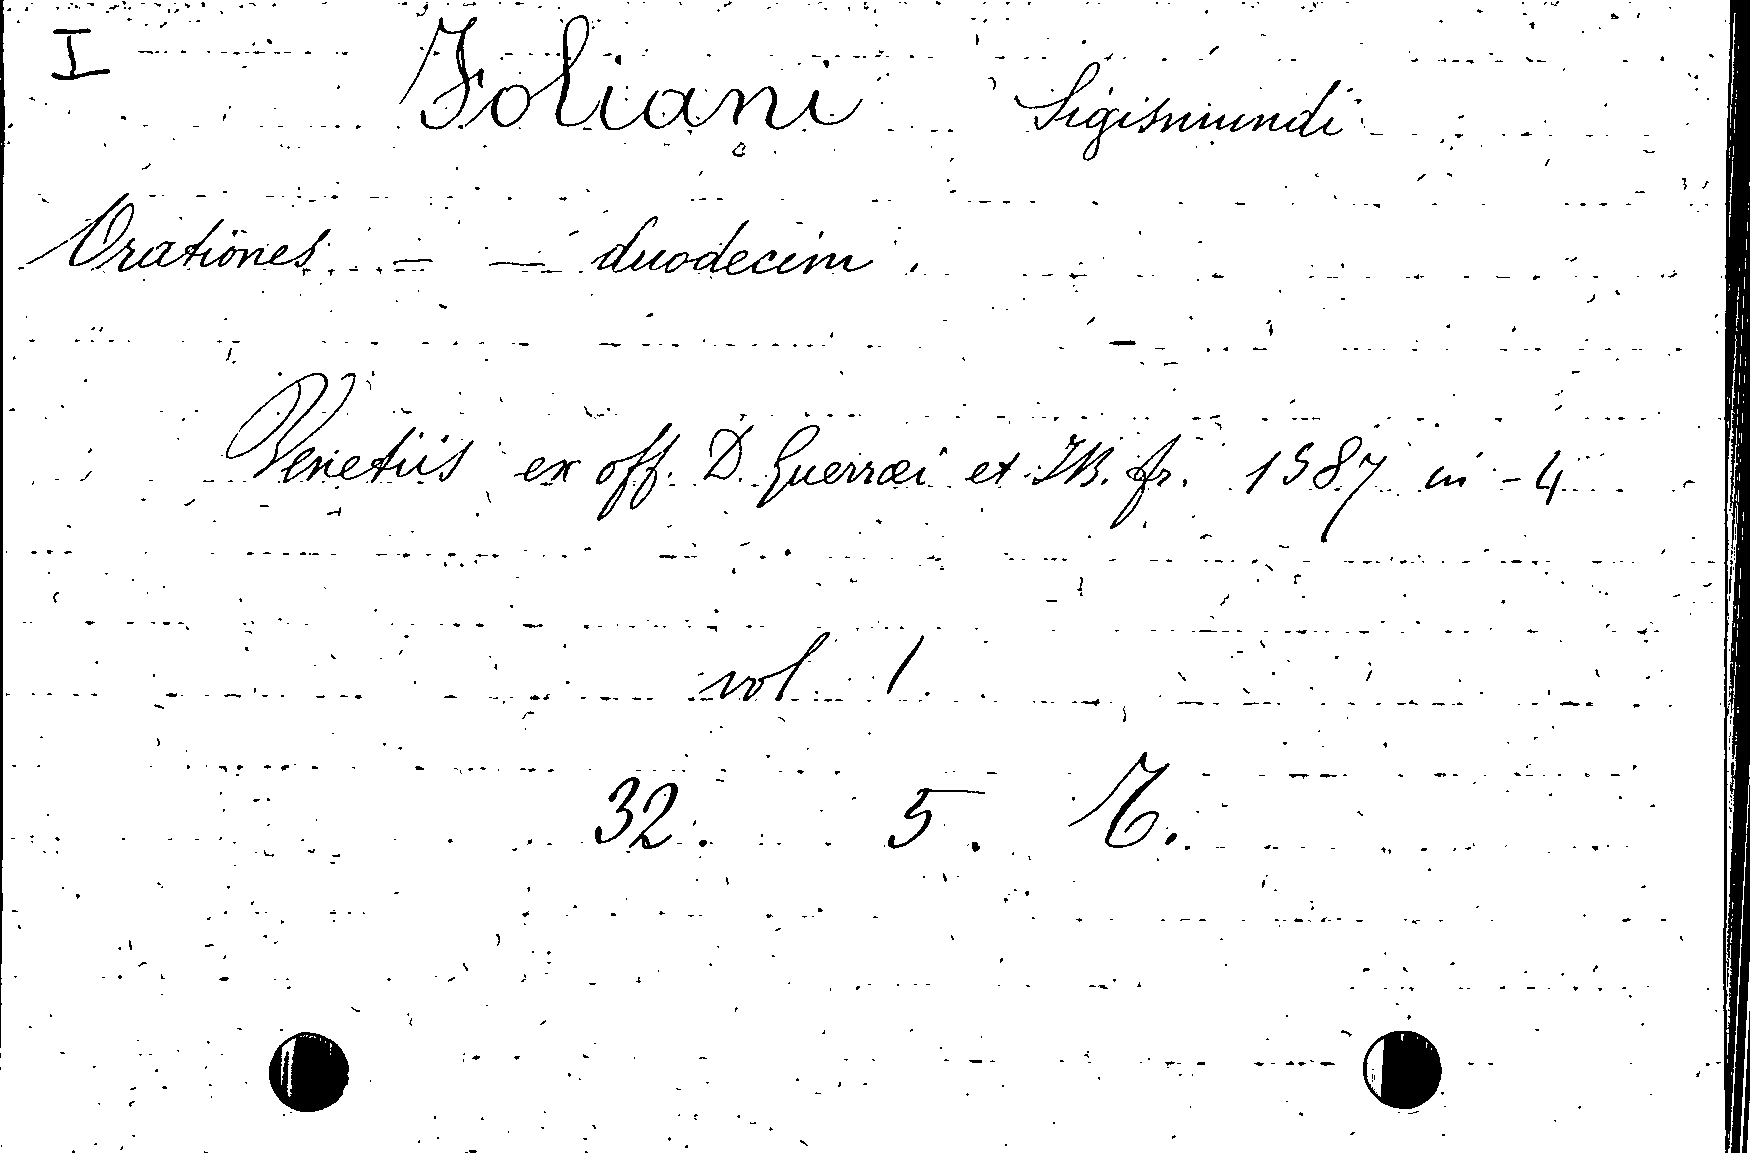 I
Foliani Sigismundi
Orationes — — duodecim.
Venetiis ex off. D. Guerræi et JB. fr. 1587 in-4
vol 1
32. 5. 7.